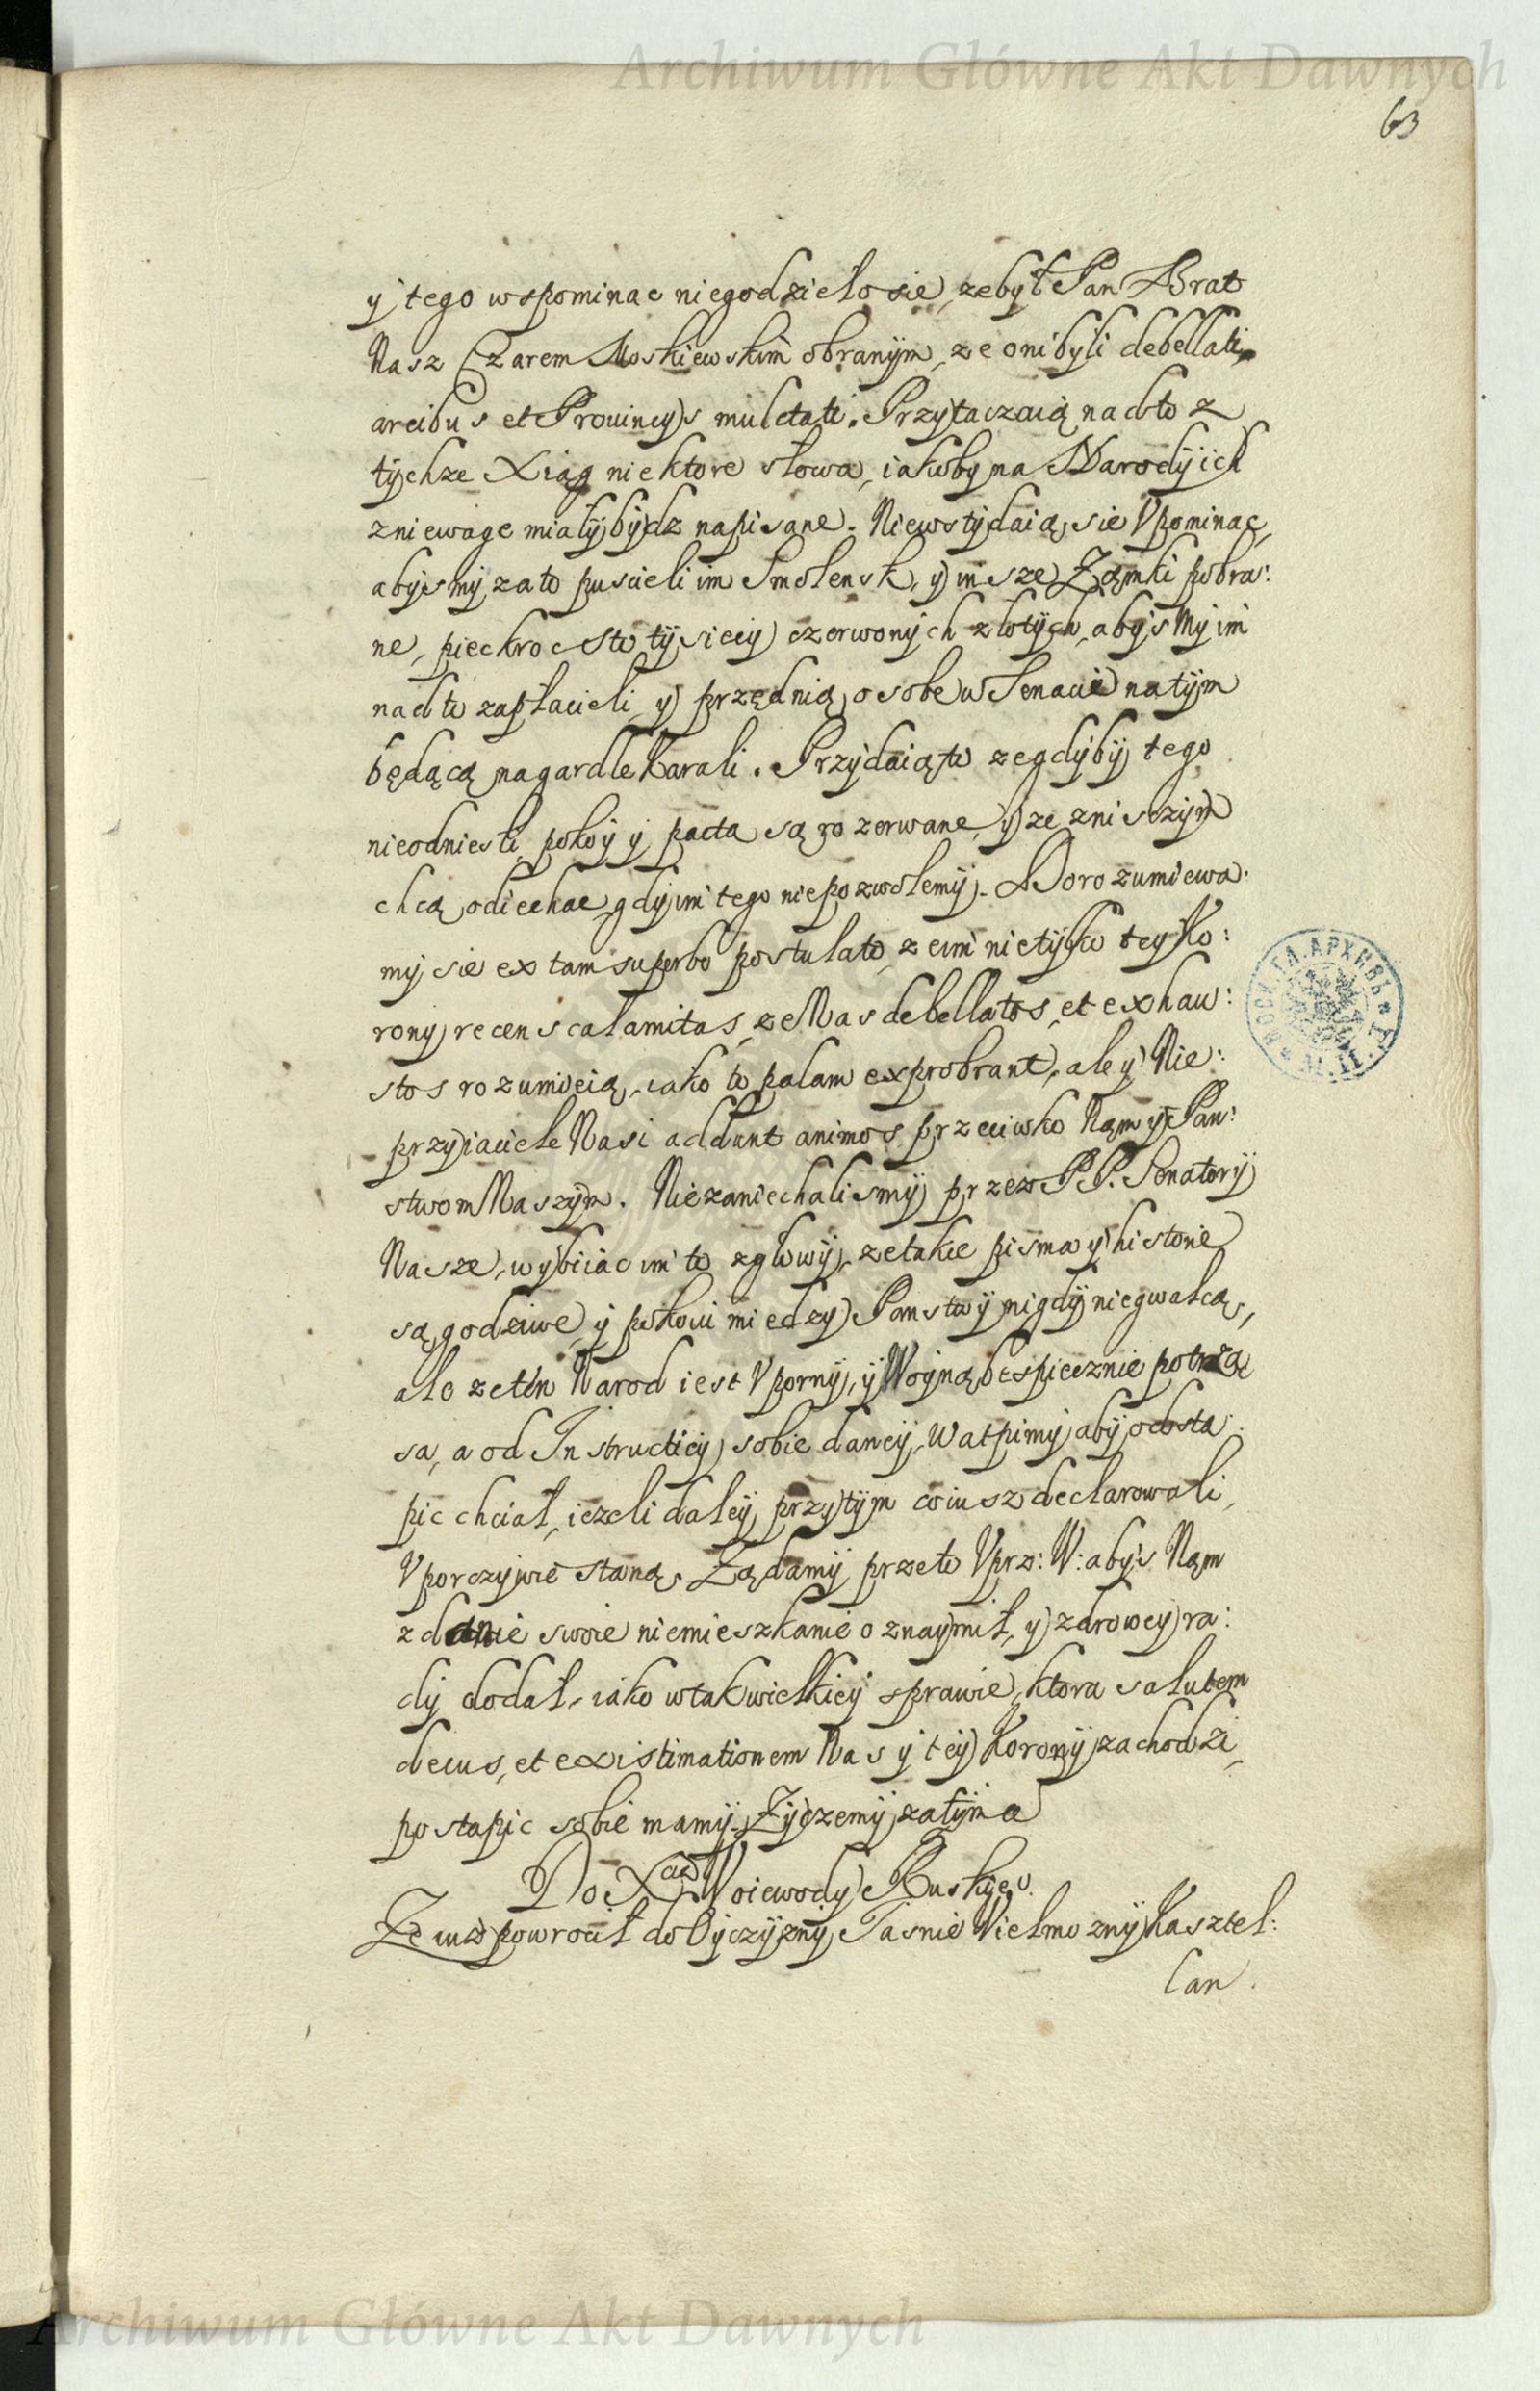 Archiwum Główne Akt Dawnych
63
y tego wspominac niegodzieło sie, ze był Pan Brat
Nasz Czarem Moskiewskim obranym, ze oni byli debellati,
arcibus et Prouincys mulctati. Przytaczaią nadto z
tychze Xiąg niektore słowa, iakoby na Narody ich
zniewage miały bydz napisane. Niewstydaią sie Vpominac,
abysmy zato puscieli im Smolensk, y insze Zamki pobra:
ne, pieckroc sto tysięcy czerwonych złotych, abysmy im
nadto zapłacieli, y przędnią osobe w Senacie natym
będącą na gardle karali. Przydaią to ze gdyby tego
nieodniesli, pokoy y pacta są rozerwane, y ze zniszczym
chcą odiechac gdy im tego niepozwolemy. Dorozumiewa:
my sie ex tam superbo postulato, z cim nietylko tey Ko:
rony recens calamitas, ze Nas debellatos, et exhau:
stos rozumieią, iako to palam exprobrant, ale y Nie:
przyiaciele Nasi addunt animos przeciwko Nąm y Pan:
stwom Naszym. Niezaniechalismy przez PP. Senatory
Nasze, wybiiac im to zgłowy, ze takie pisma y historie
są godziwe, y pokoiu miedzy Panstwy nigdy niegwałcą,
ale ze ten Narod iest Vporny, y Woyną bespiecznie potrzą
sa, a od Instructiey sobie daney, Watpimy aby odsta:
pic chciał, iezeli daley przytym co iusz declarowali,
Vporczywie staną. Ządamy przeto Vprz: W: abys Nąm
zdanie swoie niemieszkanie oznaymił, y zdrowey ra:
dy dodał, iako wtak wielkiey sprawie, ktora salutem
decus, et existimationem Nas y tey Korony zachodzi,
postapic sobie mamy. Zyczemy zatym a
Do Xcia Woiewody Ruskieo.
Ze iusz powrocił do Oyczyzny Jasnie Wielmozny Kasztel:
lan.
МОСК. ГЛ. АРХИВЪ
Archiwum Główne Akt Dawnych